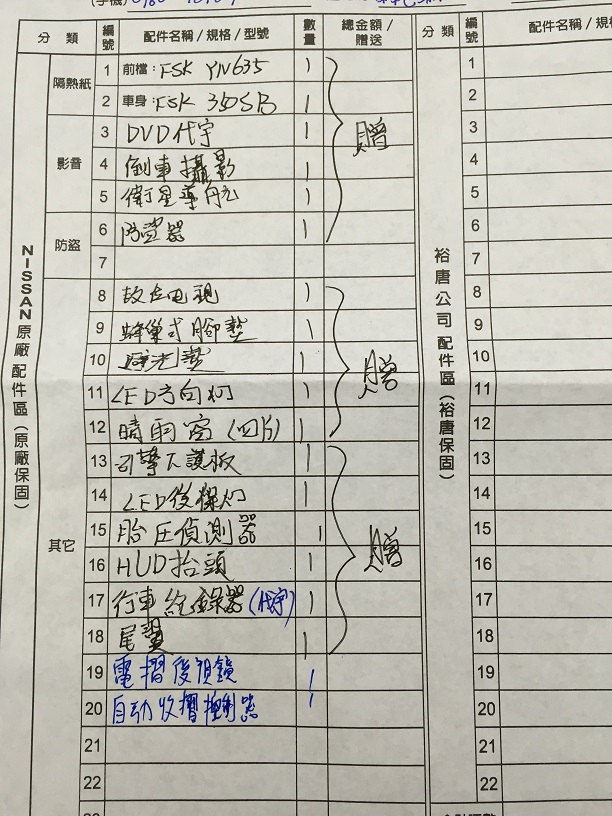 (手機)
分 類 編號 配件名稱/規格/型號 數量 總金額/贈送 分 類 編號 配件名稱/規格
NISSAN原廠配件區(原廠保固)
隔熱紙 1 前檔:FSK YN635 1 1
2 車身:FSK 350SB 1 2
影音 3 DVD代宇 1 贈 3
4 倒車攝影 1 4
5 衛星導航 1 5
防盜 6 防盜器 1 6
7 7
裕唐公司配件區(裕唐保固)
其它 8 數位电視 1 8
9 蜂巢式腳墊 1 9
10 墊 1 贈 10
11 LED方向灯 1 11
12 晴雨窗(四片) 1 12
13 引擎下護板 1 13
14 LED後燈 1 14
15 胎圧偵測器 1 15
16 HUD抬頭 1 贈 16
17 行車紀錄器(代宇) 1 17
18 尾翼 1 18
19 電摺後視鏡 1 19
20 自动收摺控制器 1 20
21 21
22 22